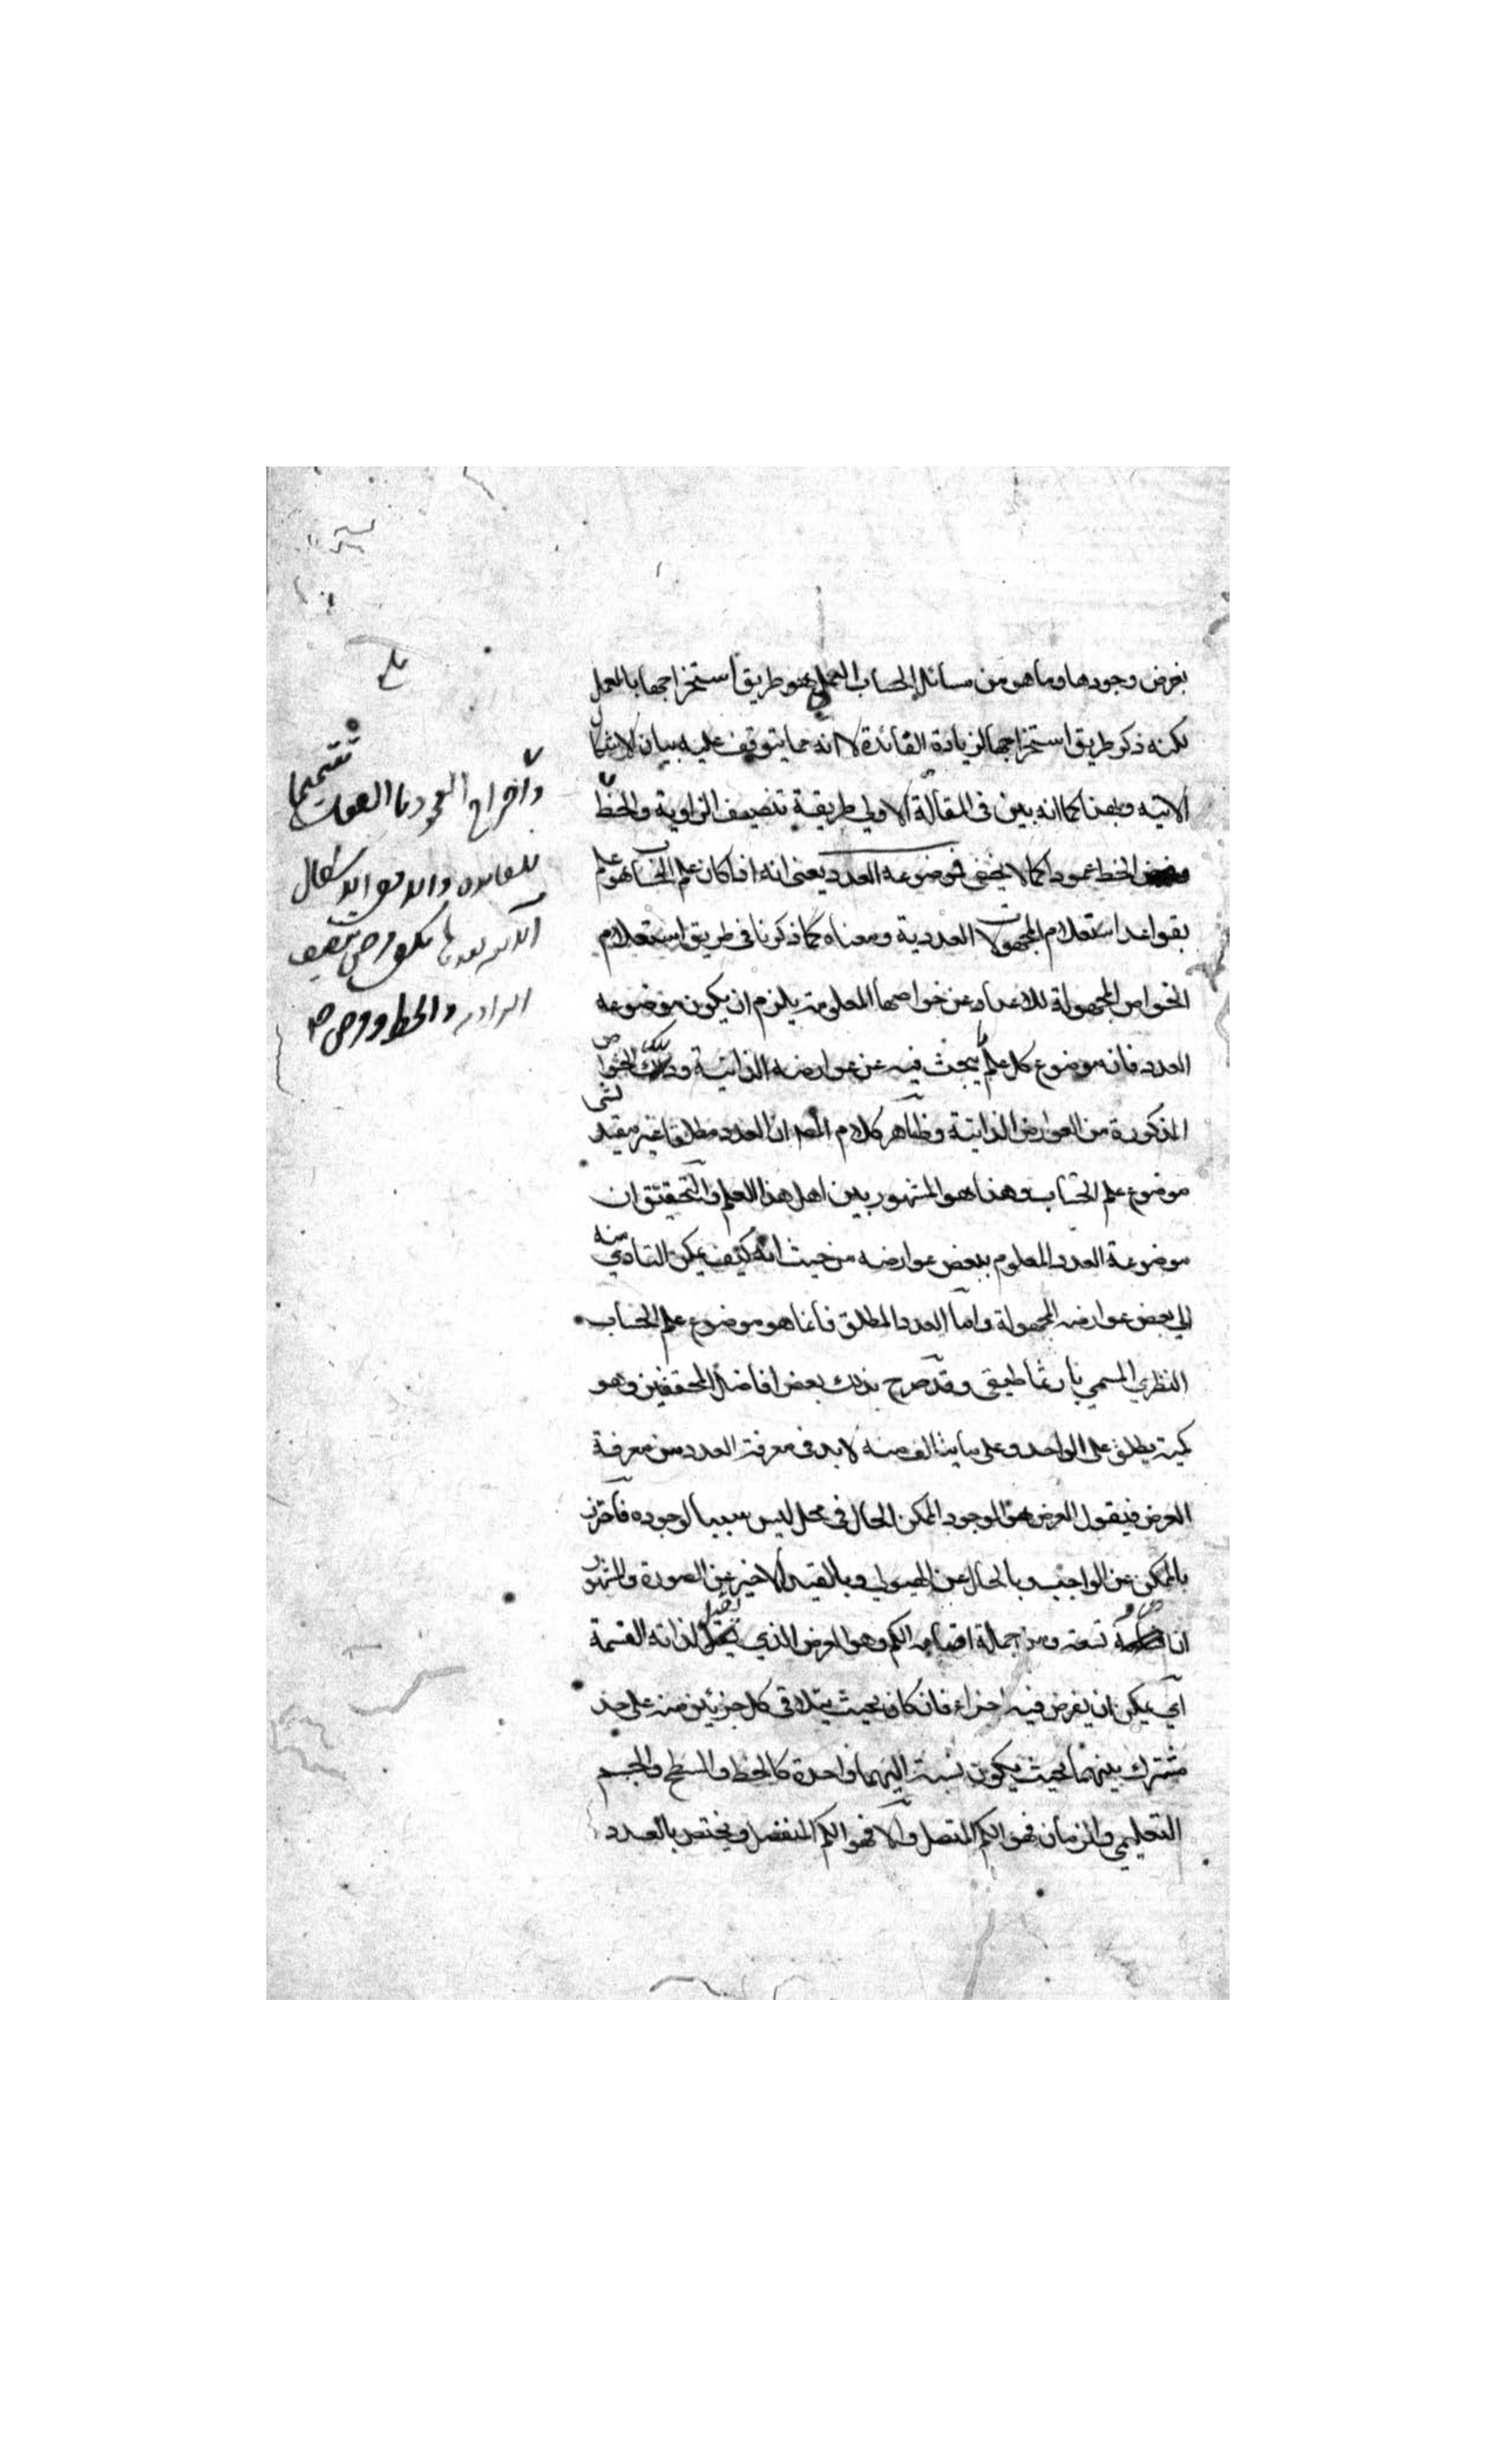 بفرض وجودها وما هو من مسائل الحساب العملي هو طريق استخراجها بالعمل
لكنه ذكر طريق استخراجها لزيادة الفائدة لا انه مما يتوقف عليه بيان الاشكال
الاتيه وهذا كما انه بين فى المقالة الاولي طريقة تنصيف الزاوية والخط
الخط عمودا كما لا يخفى فموضوعه العدد يعنى انه اذا كان علم الحساب هو علم
بقواعد استعلام المجهولات العددية ومعناه كما ذكرنا فى طريق استعلام
الخواص المجهولة للاعداد عن خواصها المعلومة يلزم ان يكون موضوعه
العدد فان موضوع كل علم ما يبحث فيه عن عوارضه الذاتية وتلك الخواص
المذكورة من العوارض الذاتية وظاهر كلام المصـ ان العدد مطلقا غير مقيد بشى
موضوع علم الحساب وهذا هو المشهور بين اهل هذا العلم والتحقيق ان
موضوعة العدد المعلوم ببعض عوارضه من حيث انه كيف يمكن التادي منه
الي بعض عوارضه المجهولة واما العدد المطلق فانما هو موضوع علم الحساب
النظري المسمي بارثماطيقى وقد صرح بذلك بعض افاضل المحققين وهو
كمية يطلق على الواحد وعلى ما يتالف منه لا بد فى معرفة العدد من معرفة
العرض فيقول العرض هو الموجود الممكن الحال فى محل ليس سببا لوجوده فاحترز
بالممكن عن الواجب وبالحال عن الهيولي وبالقيد الاخير عن الصورة والمشهور
ان تسعة ومن جملة اقسامه الكم وهو العرض الذي يقبل لذاته القسمة
اي يمكن ان يفرض فيه اجزاء فان كان بحيث يتلاقى كل جزئين منه على حد
مشترك بينهما بحيث يكون نسبته اليهما واحدة كالخط والسطح والجسم
التعليمي والزمان فهو الكم المتصل والا فهو الكم المنفصل ويختص بالعدد
بلغ
واخراج العمود
تتميما
للفائده والا فهو الاشكال
والخط وفرض